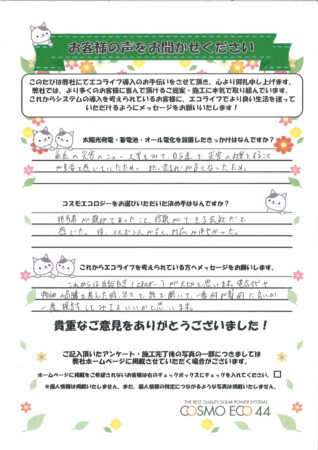 お客様の声をお聞かせください
このたびは弊社にてエコライフ導入のお手伝いをさせて頂き、心より御礼申し上げます。
弊社では、より多くのお客様に喜んで頂けるご提案・施工に本気で取り組んでいます。
これからシステムの導入を考えられているお客様に、エコライフでより良い生活を送って
いただけるようにメッセージをお願いいたします!
太陽光発電・蓄電池・オール電化を設置したきっかけはなんですか?
最近の災害のニュース等をみて、自分達で災害の対策をすること
が必要と感じていたため。
コスモエコロジーをお選びいただいた決め手はなんですか?
担当者が親切であったこと、信頼ができる会社だと
感じた。
これからエコライフを考えられている方へメッセージをお願いします。
これからは自給自足
一度検討してみてよいかと思います。
貴重なご意見をありがとうございました!
ご記入頂いたアンケート・施工完了後の写真の一部につきましては
弊社ホームページに掲載させて頂く場合がございます。
ホームページに掲載をご希望されないお客様は右のチェックボックスにチェックを入れてください。
※個人情報は掲載いたしません。また、個人情報の特定につながるような写真は掲載いたしません。
THE BEST QUALITY SOLAR POWER SYSTEMS
COSMO ECO 44